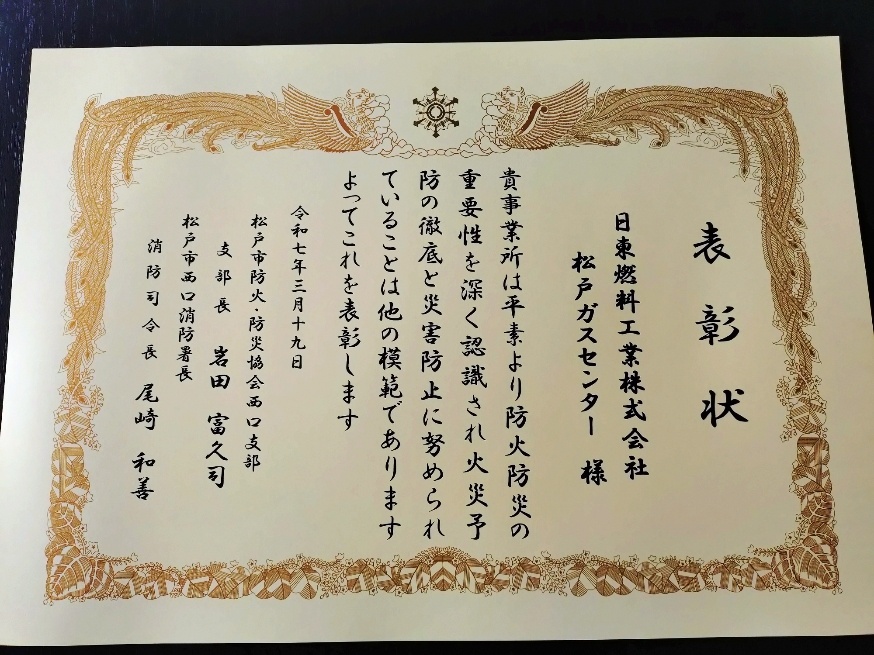 表彰状
日東燃料工業株式会社
松戸ガスセンター 様
貴事業所は平素より防火防災の
重要性を深く認識され火災予
防の徹底と災害防止に努められ
ていることは他の模範であります
よってこれを表彰します
令和七年三月十九日
松戸市防火・防災協会西口支部
支部長 岩田 富久司
松戸市西口消防署長
消防司令長 尾崎 和善